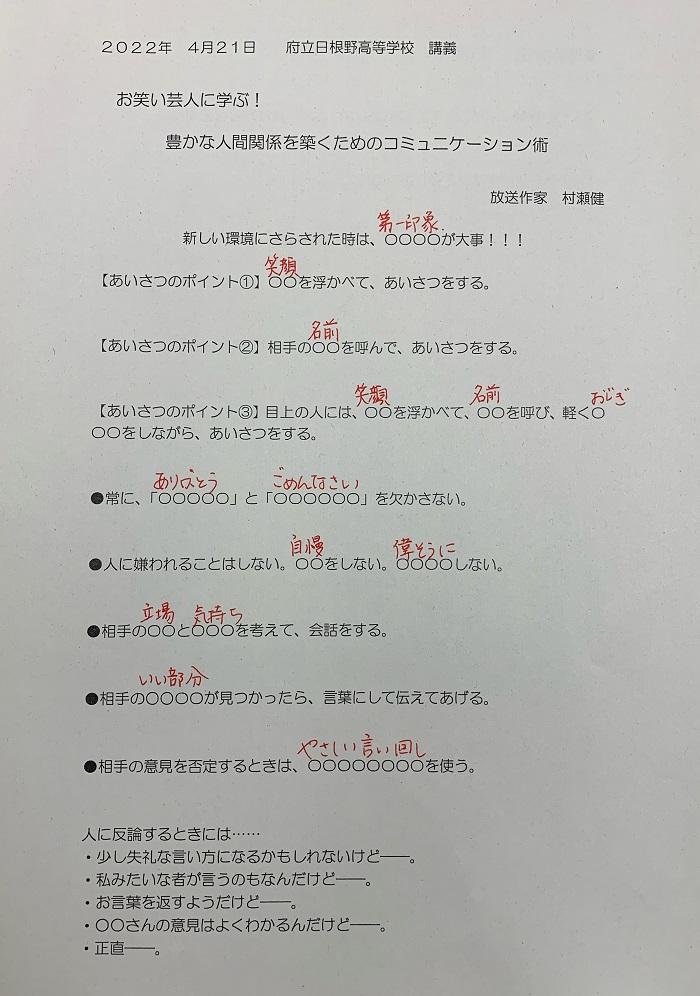 2022年 4月21日 府立日根野高等学校 講義
お笑い芸人に学ぶ！
豊かな人間関係を築くためのコミュニケーション術
放送作家 村瀬健
第一印象
新しい環境にさらされた時は、〇〇〇〇が大事！！！
笑顔
【あいさつのポイント①】〇〇を浮かべて、あいさつをする。
名前
【あいさつのポイント②】相手の〇〇を呼んで、あいさつをする。
笑顔 名前 おじぎ
【あいさつのポイント③】目上の人には、〇〇を浮かべて、〇〇を呼び、軽く〇
〇〇をしながら、あいさつをする。
ありがとう ごめんなさい
●常に、「〇〇〇〇〇」と「〇〇〇〇〇〇」を欠かさない。
自慢 偉そうに
●人に嫌われることはしない。〇〇をしない。〇〇〇〇しない。
立場 気持ち
●相手の〇〇と〇〇〇を考えて、会話をする。
いい部分
●相手の〇〇〇〇が見つかったら、言葉にして伝えてあげる。
やさしい言い回し
●相手の意見を否定するときは、〇〇〇〇〇〇〇〇を使う。
人に反論するときには……
・少し失礼な言い方になるかもしれないけど――。
・私みたいな者が言うのもなんだけど――。
・お言葉を返すようだけど――。
・〇〇さんの意見はよくわかるんだけど――。
・正直――。